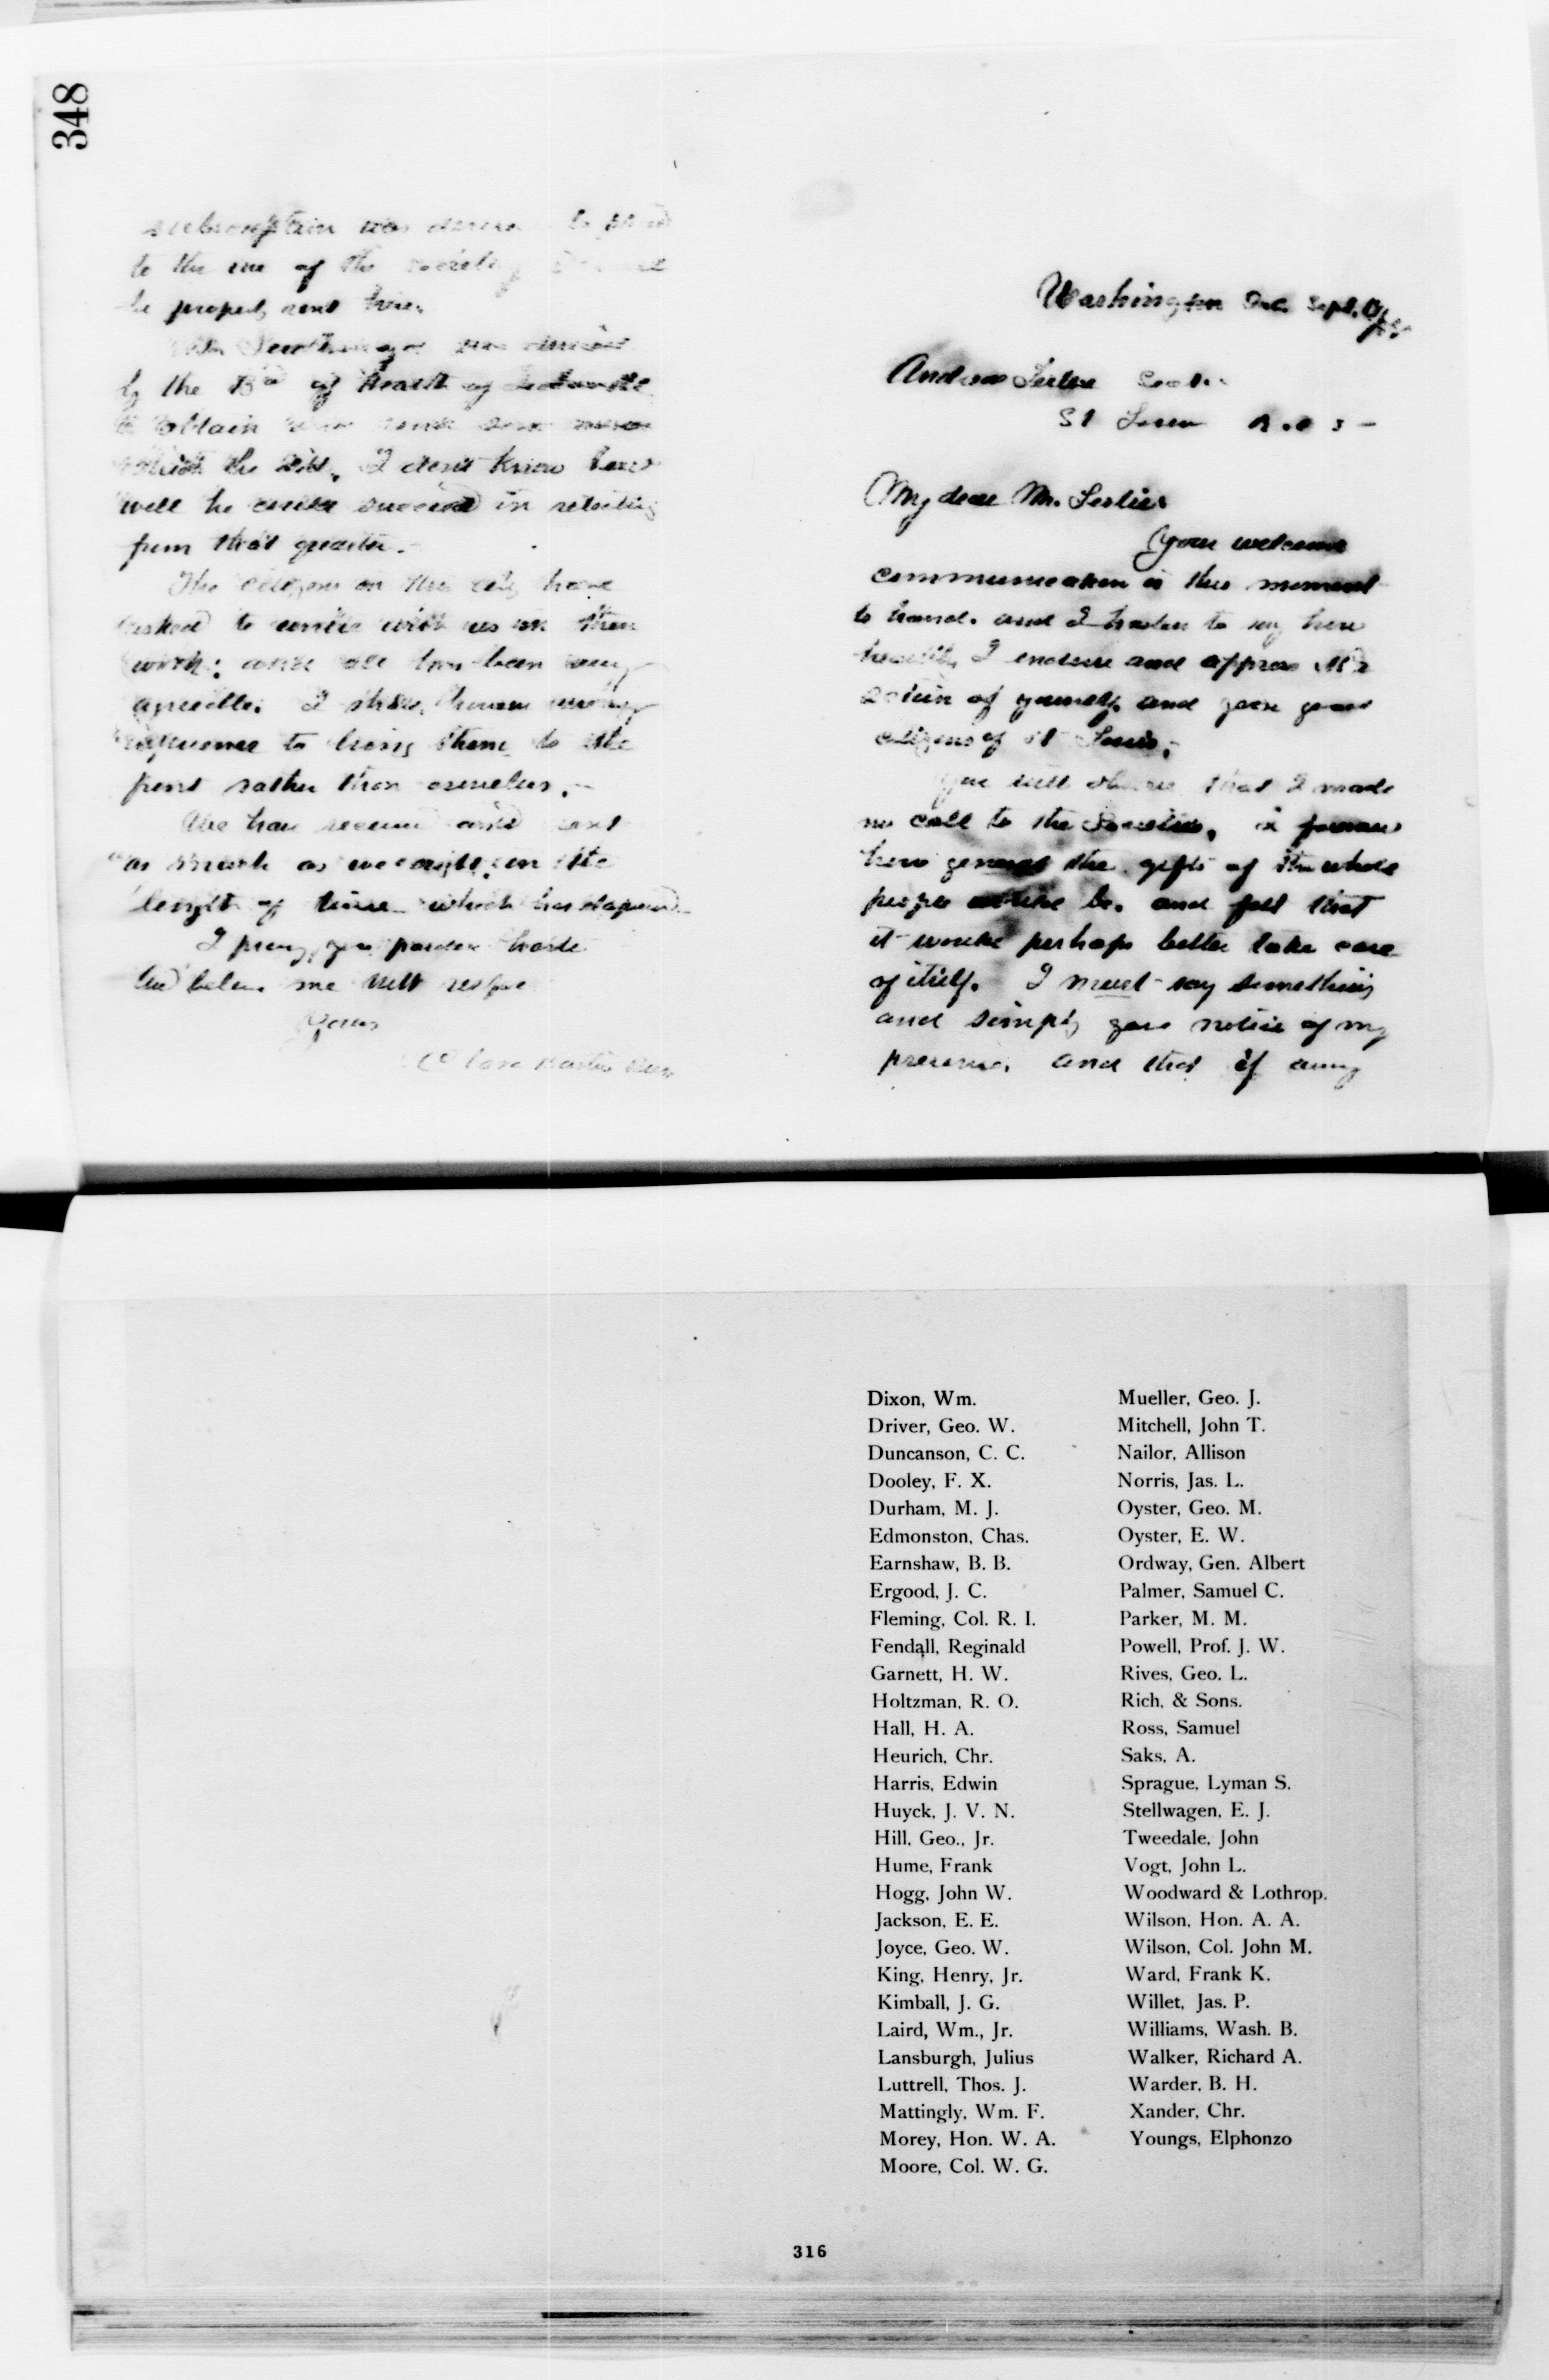 348
subscription was desired to
to the use of the society
be properly sent here.
by the Bd of Health of
to obtain some
the sick. I don't know how
well he could succeed in
from that quarter.
The citizens on this city have
asked to unite with us in their
work: and all has been very
agreeable. I shall however
to bring them to the
front rather than ourselves.
We have received and sent
as much as we ought, in the
length of time which has elapsed.
I pray you pardon haste
and believe me with
Yours
Clara Barton
Washington D.C. Sept.
Andrew Leslie
St Louis
My dear Mr. Leslie.
Your welcome
communication is this moment
to hand. and I hasten to say how
heartily I endorse and approve the
action of yourself, and your good
citizens of St Louis.
You will observe that I made
no call to the Societies, I
how general the gifts of the whole
people would be. and felt that
it would perhaps better take care
of itself. I must say something
and simply gave notice of my
presence, and that if any
Dixon, Wm.
Driver, Geo. W.
Duncanson, C. C.
Dooley, F. X.
Durham, M. J.
Edmonston, Chas.
Earnshaw, B. B.
Ergood, J. C.
Fleming, Col. R. I.
Fendall, Reginald
Garnett, H. W.
Holtzman, R. O.
Hall, H. A.
Heurich, Chr.
Harris, Edwin
Huyck, J. V. N.
Hill, Geo., Jr.
Hume, Frank
Hogg, John W.
Jackson, E. E.
Joyce, Geo. W.
King, Henry, Jr.
Kimball, J. G.
Laird, Wm., Jr.
Lansburgh, Julius
Luttrell, Thos. J.
Mattingly, Wm. F.
Morey, Hon. W. A.
Moore, Col. W. G.
Mueller, Geo. J.
Mitchell, John T.
Nailor, Allison
Norris, Jas. L.
Oyster, Geo. M.
Oyster, E. W.
Ordway, Gen. Albert
Palmer, Samuel C.
Parker, M. M.
Powell, Prof. J. W.
Rives, Geo. L.
Rich, & Sons.
Ross, Samuel
Saks, A.
Sprague, Lyman S.
Stellwagen, E. J.
Tweedale, John
Vogt, John L.
Woodward & Lothrop.
Wilson, Hon. A. A.
Wilson, Col. John M.
Ward, Frank K.
Willet, Jas. P.
Williams, Wash. B.
Walker, Richard A.
Warder, B. H.
Xander, Chr.
Youngs, Elphonzo
316